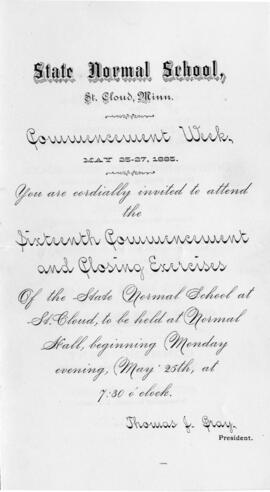 State Normal School,
St. Cloud, Minn.
Commencement Week,
MAY 25-27, 1885.
You are cordially invited to attend
the
Sixteenth Commencement
and Closing Exercises
Of the State Normal School at
St. Cloud, to be held at Normal
Hall, beginning Monday
evening, May 25th, at
7:30 o'clock.
Thomas J. Gray,
President.